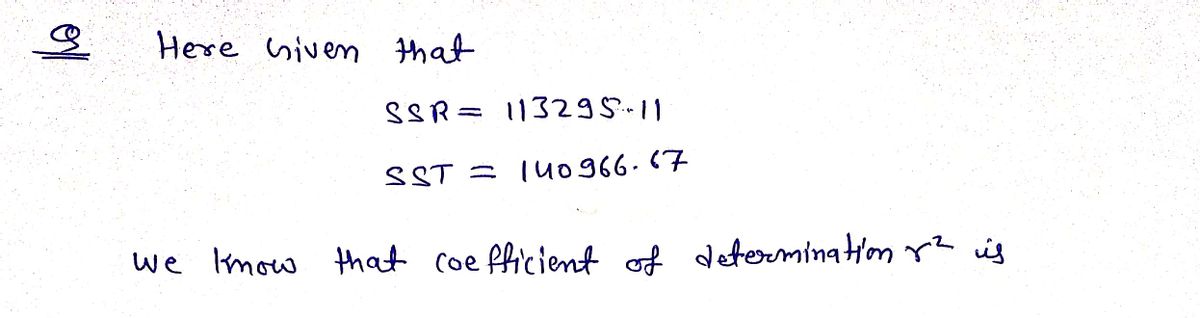 Q Here Given that
SSR = 113295.11
SST = 140966.67
we know that coefficient of determination r² is